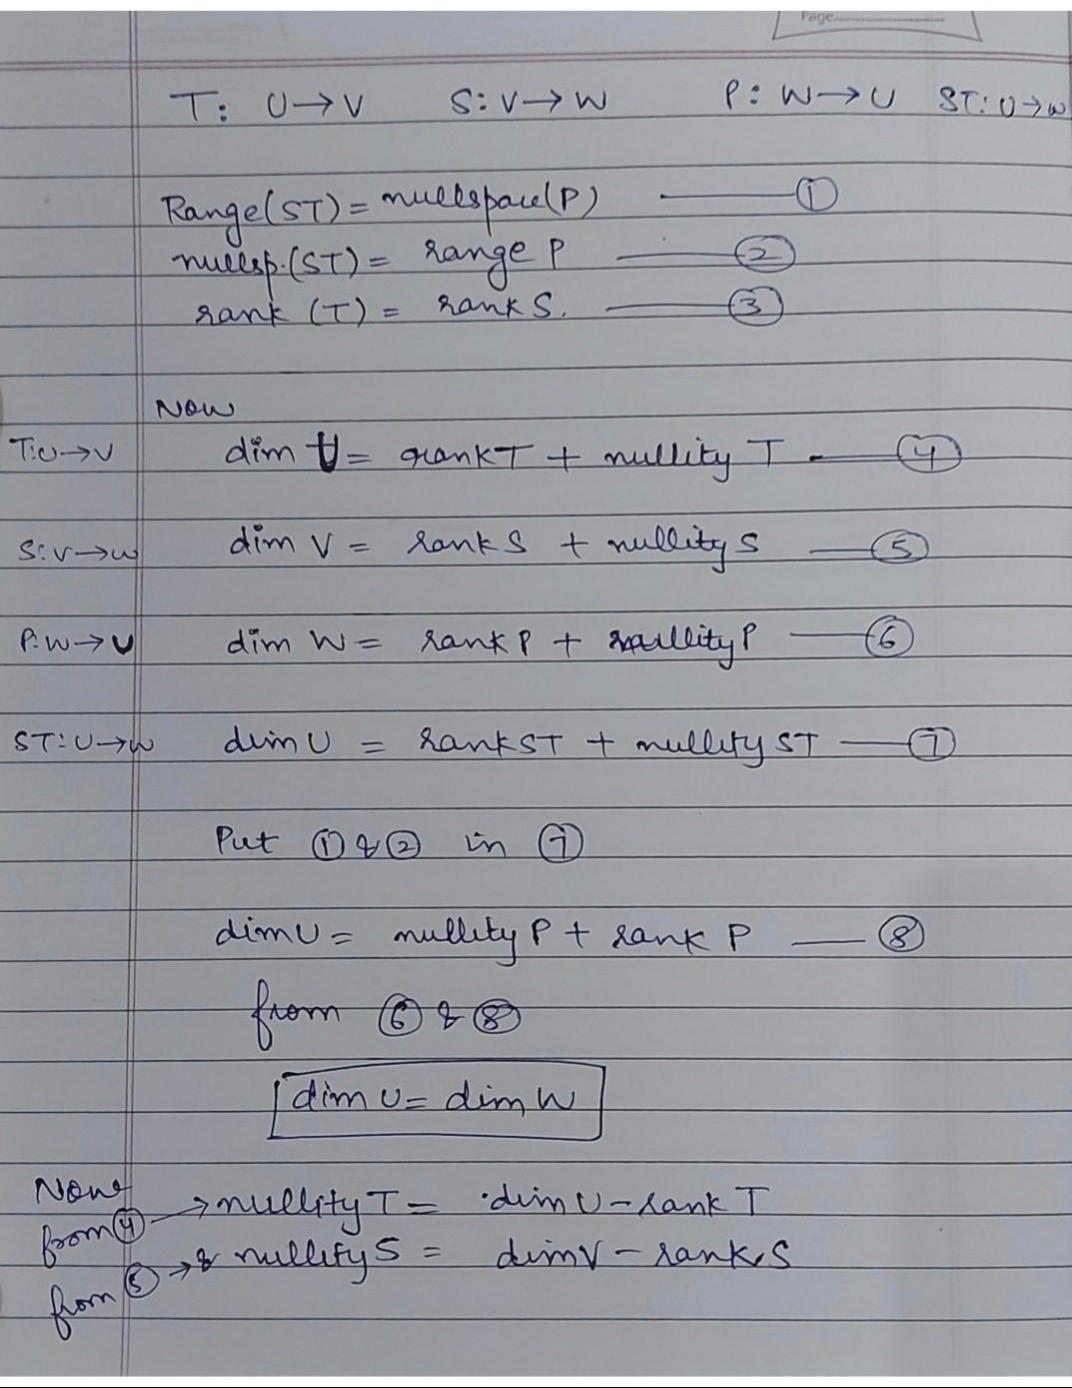 Page
T: U→V S: V→W P: W→U ST: U→W
Range(ST) = nullspace(P) ——— ①
nullsp.(ST) = range P ——— ②
rank (T) = rank S. ——— ③
Now
T:U→V dim U = rank T + nullity T ——— ④
S:V→W dim V = rank S + nullity S ——— ⑤
P:W→U dim W = rank P + nullity P ——— ⑥
ST:U→W dim U = rank ST + nullity ST ——— ⑦
Put ① & ② in ⑦
dim U = nullity P + rank P ——— ⑧
from ⑥ & ⑧
dim U = dim W
Now
from ④ → nullity T = dim U - rank T
from ⑤ → & nullity S = dim V - rank S